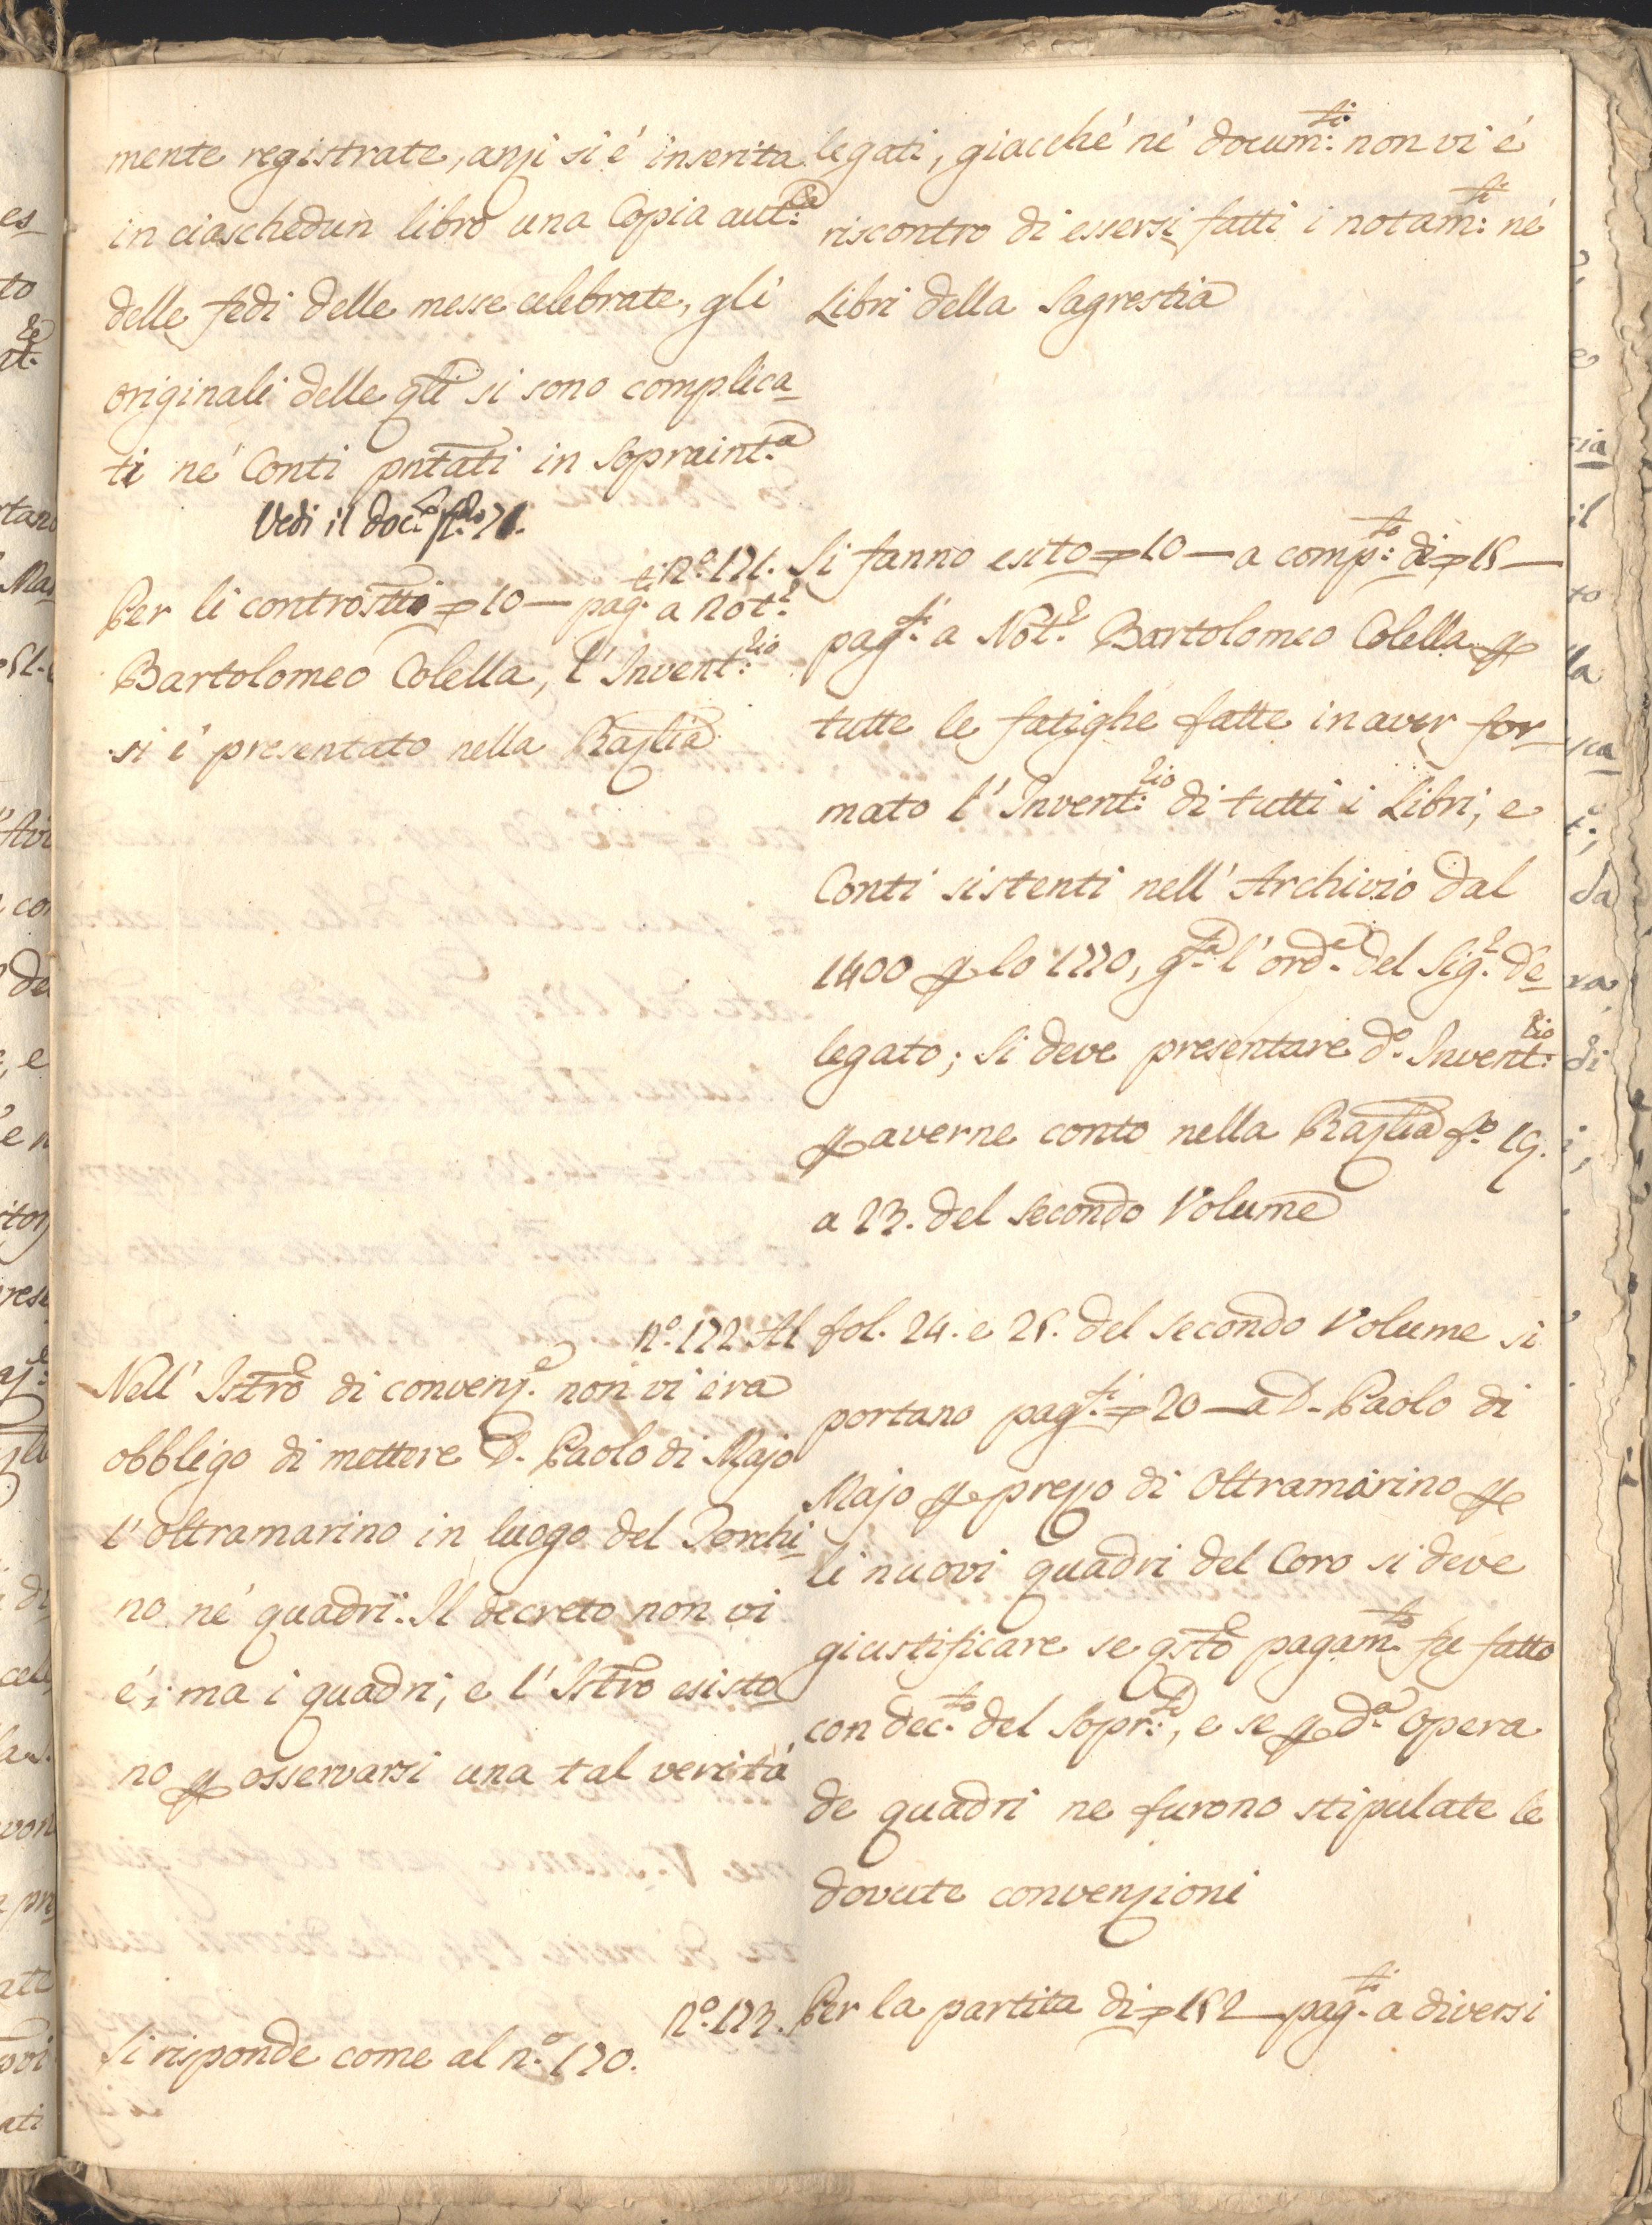 mente registrate, anzi si é inserita
in ciaschedun libro una Copia aut:ca
delle fedi delle messe celebrate, gli
originali delle qli si sono complica_
ti né Conti pntati in Sopraint.a
Vedi il doc.to
Per li controstti 10 — pag.ti a Not.r
Bartolomeo Colella, l'Invent:rio
si é presentato nella Razlia
Nell' Istro di convenz.e non vi era
obbligo di mettere D. Paolo di Majo
l'oltramarino in luogo del Torchi_
no né quadri. Il decreto non vi
é; ma i quadri, e l'Istro esisto_
no p osservarsi una tal veritá
Si risponde come al n.o 170.
legati, giacché né docum:ti non vi é
riscontro di essersi fatti i notam:ti né
Libri della Sagrestia
n.o 171. Si fanno esito 10 — a comp:to di 15 —
pag.ti a Not.r Bartolomeo Colella p
tutte le fatighe fatte in aver for_
mato l'Invent:rio di tutti i Libri, e
Conti sistenti nell' Archivio dal
1400 p lo 1770, g.ta l'ord.e del Sig.r De_
legato; Si deve presentare d.o Invent:rio
p averne conto nella Razlia f.o 19.
a 23. del secondo Volume
n.o 172 Al fol. 24. e 25. del secondo Volume si
portano pag.ti 20 — a D. Paolo di
Majo p prezzo di Oltramarino p
li nuovi quadri del Coro si deve
giustificare se qsto pagam.to fu fatto
con dec.to del Sopr:te, e se p d.a opera
de quadri ne furono stipulate le
dovute convenzioni
n.o 173. Per la partita di 152 — pag.ti a diversi